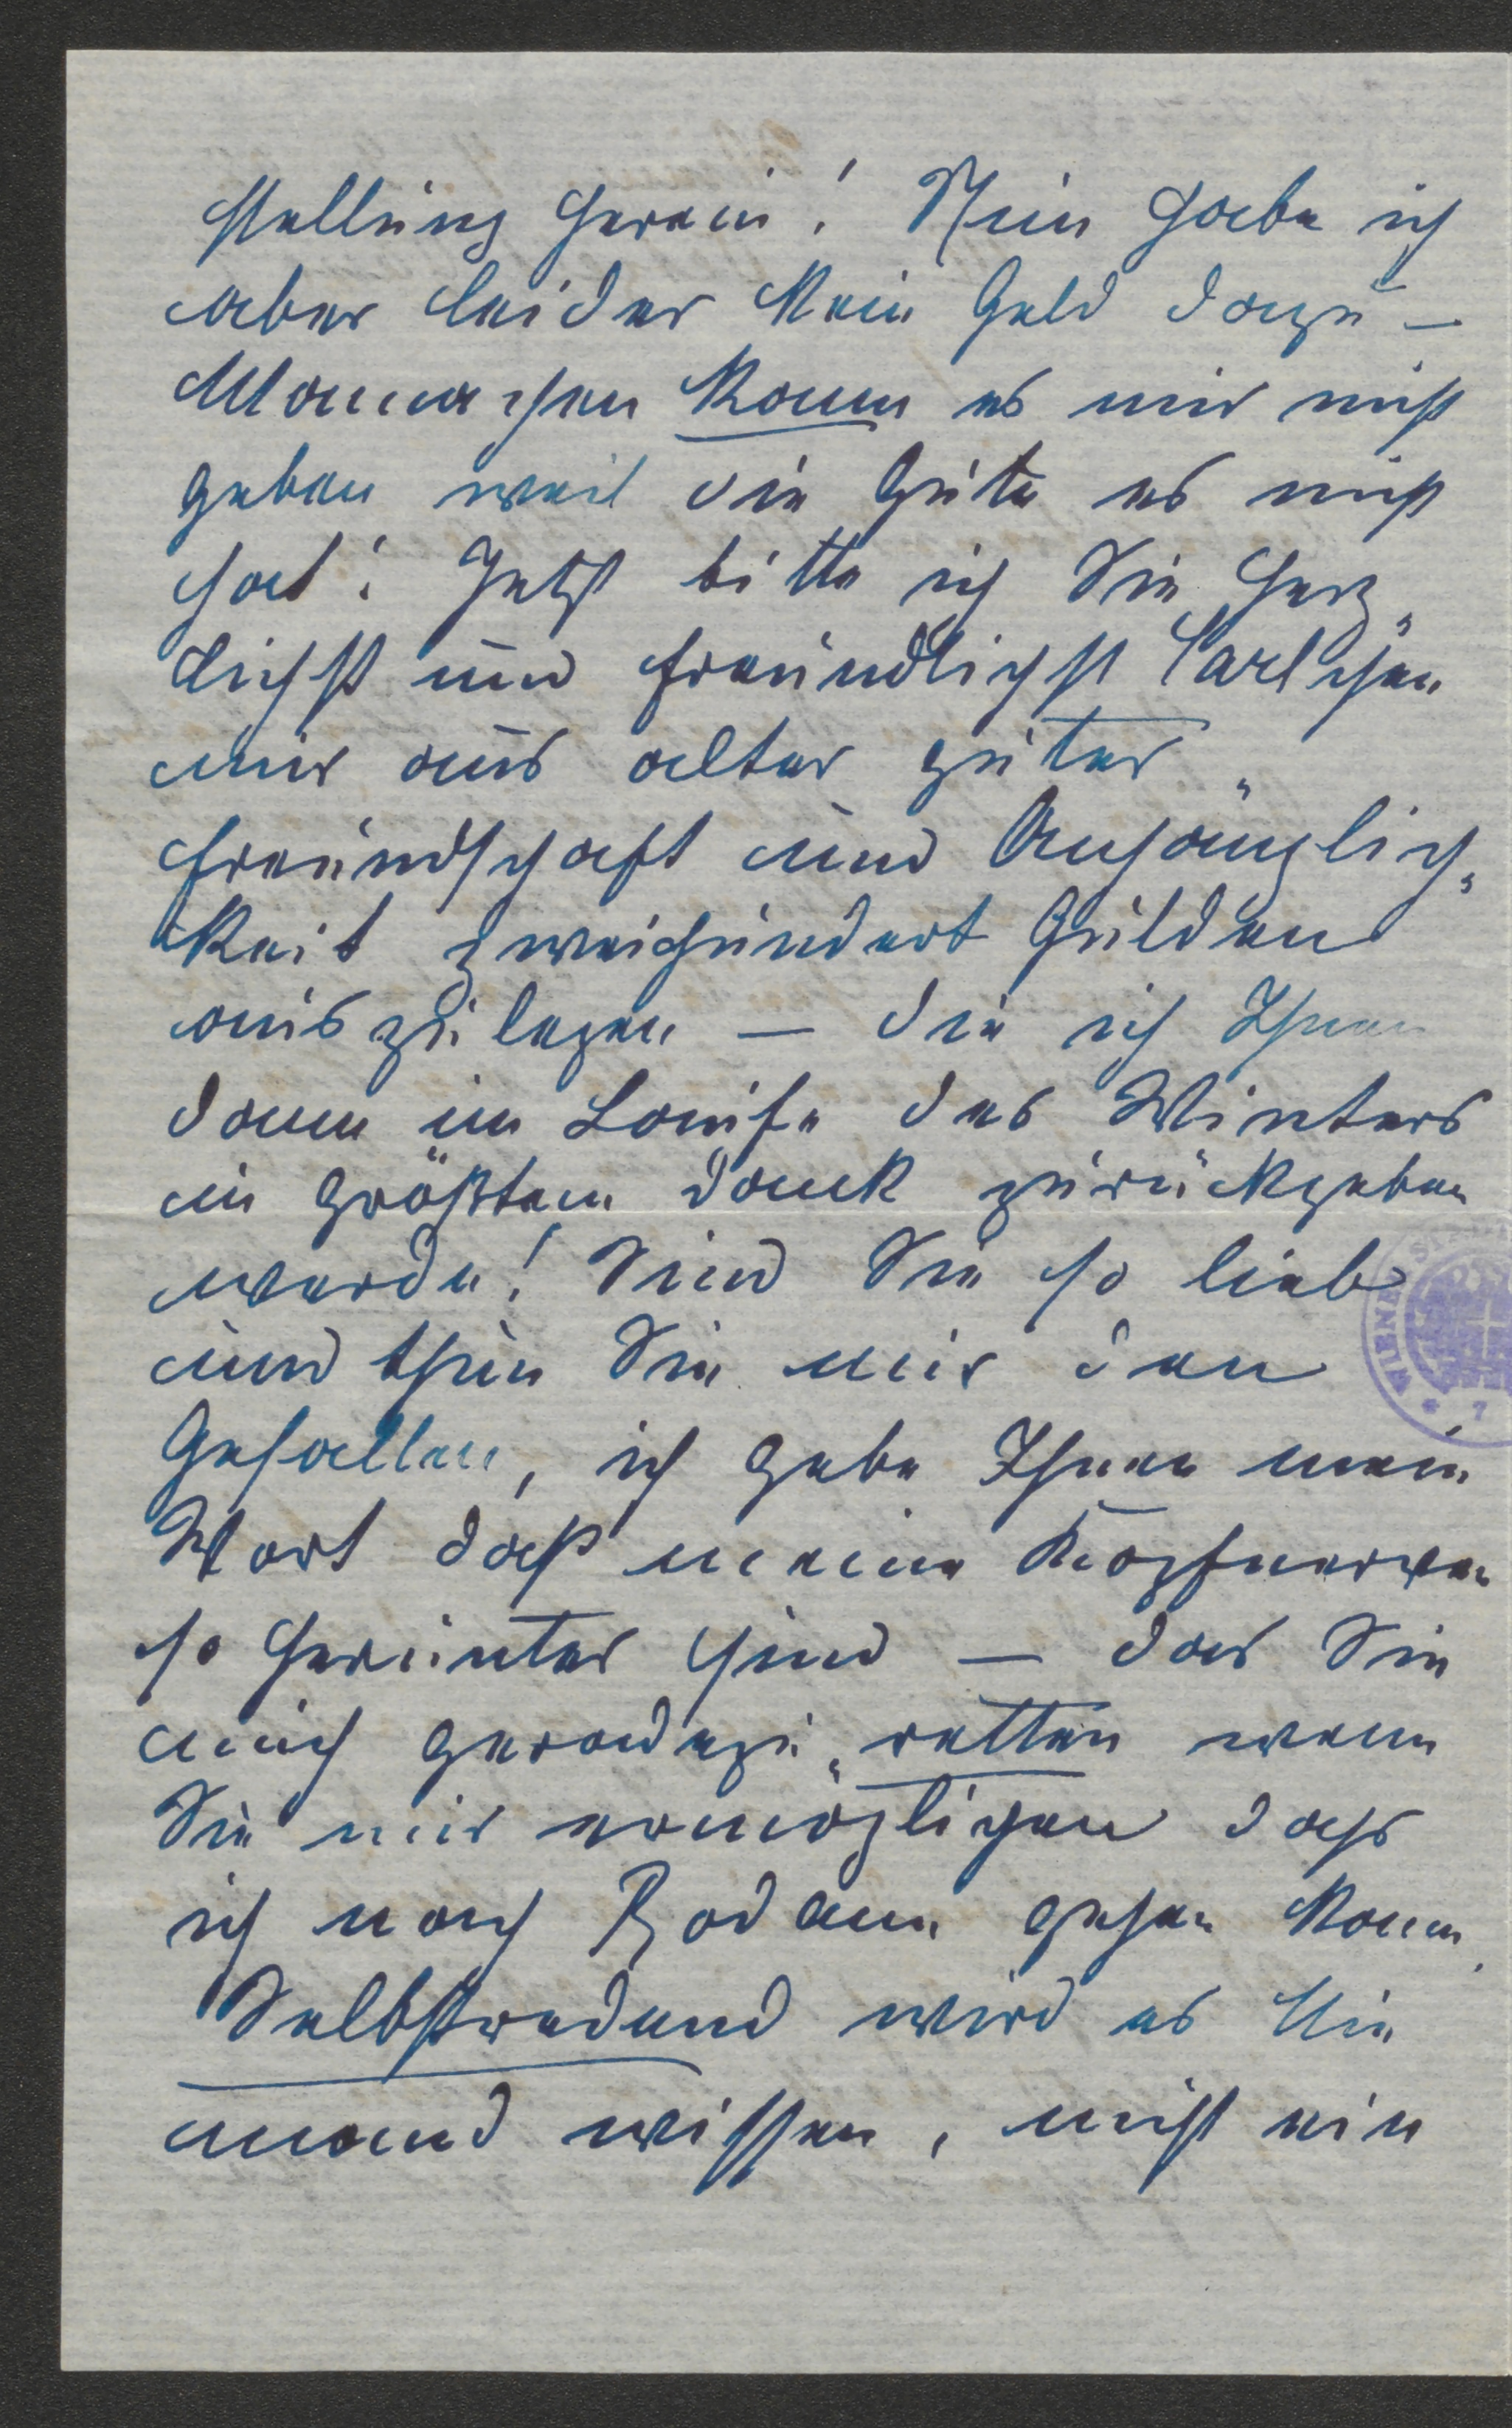 stellung herein! Nun habe ich
aber leider kein Geld dazu —
Mamachen kann es mir nicht
geben weil die Gute es nicht
hat! Jetzt bitte ich Sie herz„
lichst und freundlichst Carlchen
mir aus alter guter
Freundschaft und Anhänglich„
keit zweihundert Gulden
auszulegen — die ich Ihnen
dann im Laufe des Winters
in größtem Dank zurückgeben
werde! Sind Sie so lieb
und thun Sie mir den
Gefallen, ich gebe Ihnen mein
Wort daß meine Kopfnerven
so herunter sind — das Sie
mich geradezu „retten wenn
Sie mir ermöglichen dass
ich nach Rodaun gehen kann
Selbstredend wird es Nie
mand wissen, nicht ein
WIENER
7